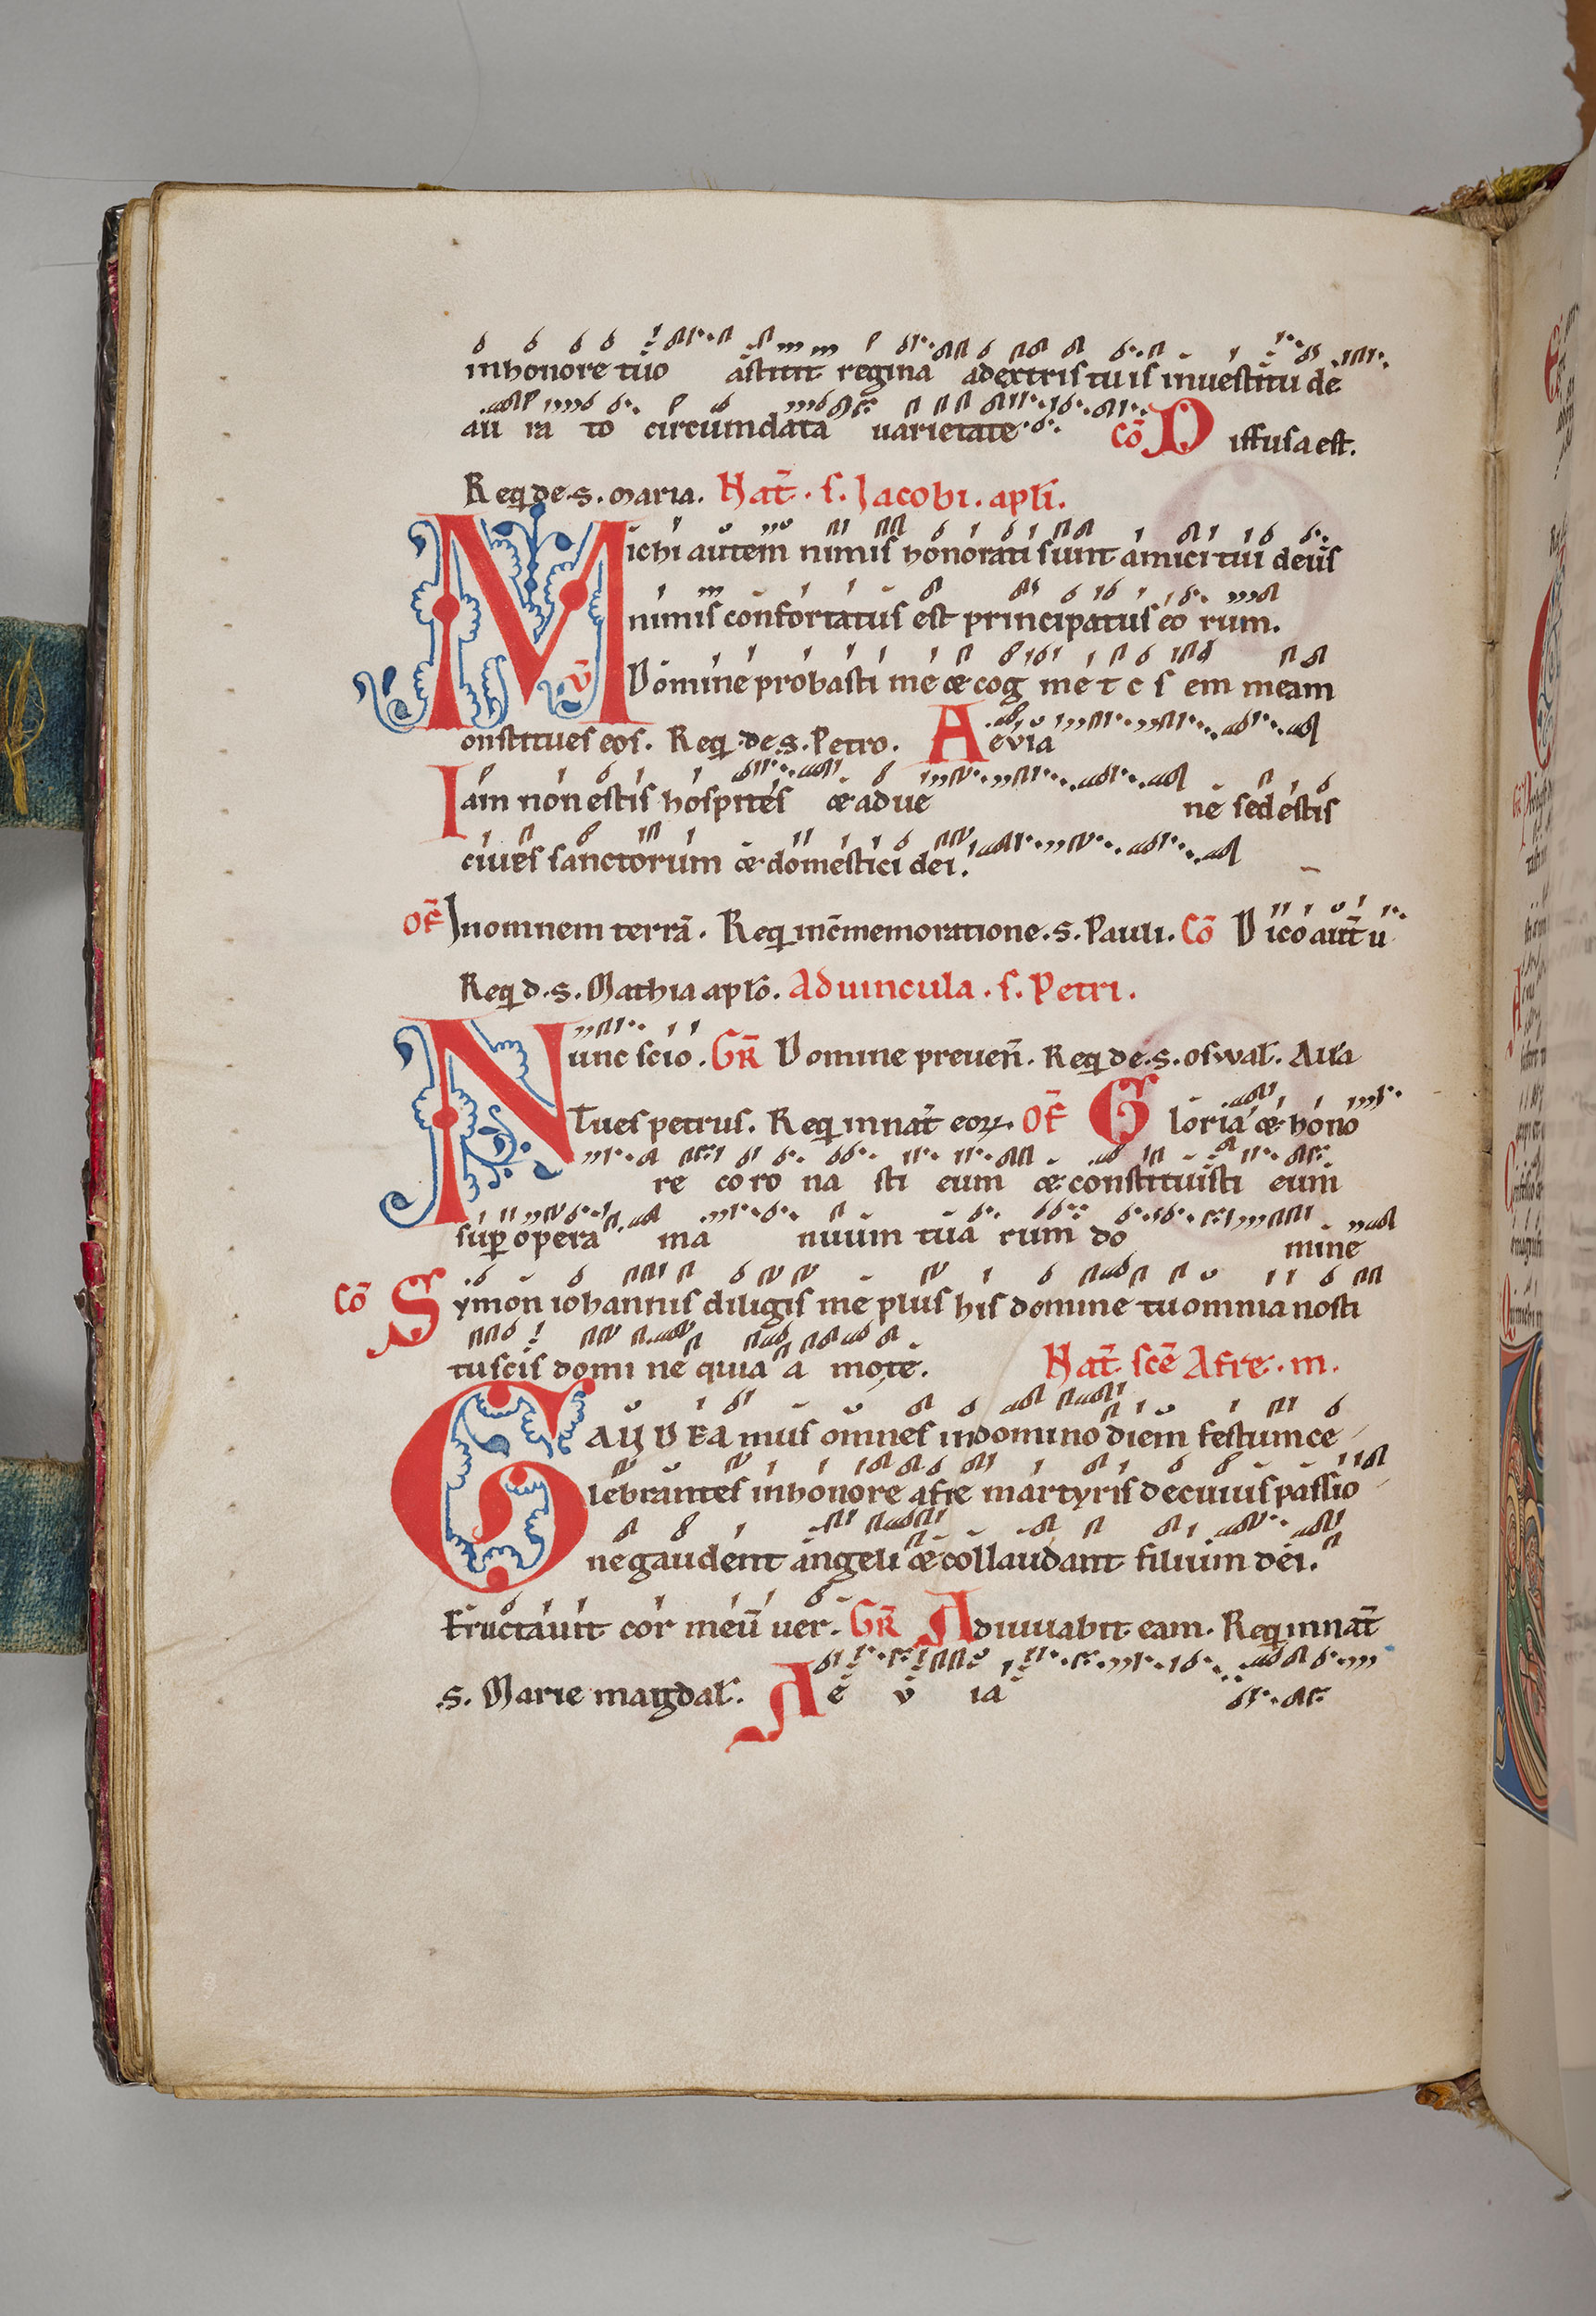 inhonore tuo astitit regina adextris tuis inuestitu de
au ra to circumdata uarietate. Cō Diffusa est.
Req de .s. maria. Nat̄. s. Jacobi. apli.
Michi autem nimis honorati sunt amici tui deus
nimis confortatus est principatus eo rum.
v̄ Domine probasti me & cog me t c s em meam
onstitues eos. Req. de .s. Petro. Aevia
Iam non estis hospites & adue ne sed estis
ciues sanctorum & domestici dei.
OF̄ Inomnem terrā. Req incm̄emoratione .s. Pauli. Cō Dico aut̄ u
Req d .s. Mathia aplō. Aduincula. s. Petri.
Nunc scio. GR̄ Domine preuen̄. Req de .s. oswal. Aeuia
Tu es petrus. Req innat̄ eoꝝ. OF̄ Gloria & hono
re co ro na sti eum & constituisti eum
sup opera ma nuum tua rum do mine
Cō Symon iohannis diligis me plus his domine tu omnia nosti
tu scis domi ne quia a mo te. Nat̄ scē Afre. m.
GAUDEamus omnes indomino diem festum ce
lebrantes inhonore afre martyris decuius passio
ne gaudent angeli & collaudant filium dei.
Eructauit cor meū uer. GR̄ Adiuuabit eam. Req innat̄
.s. Marie magdal. Ae v ia